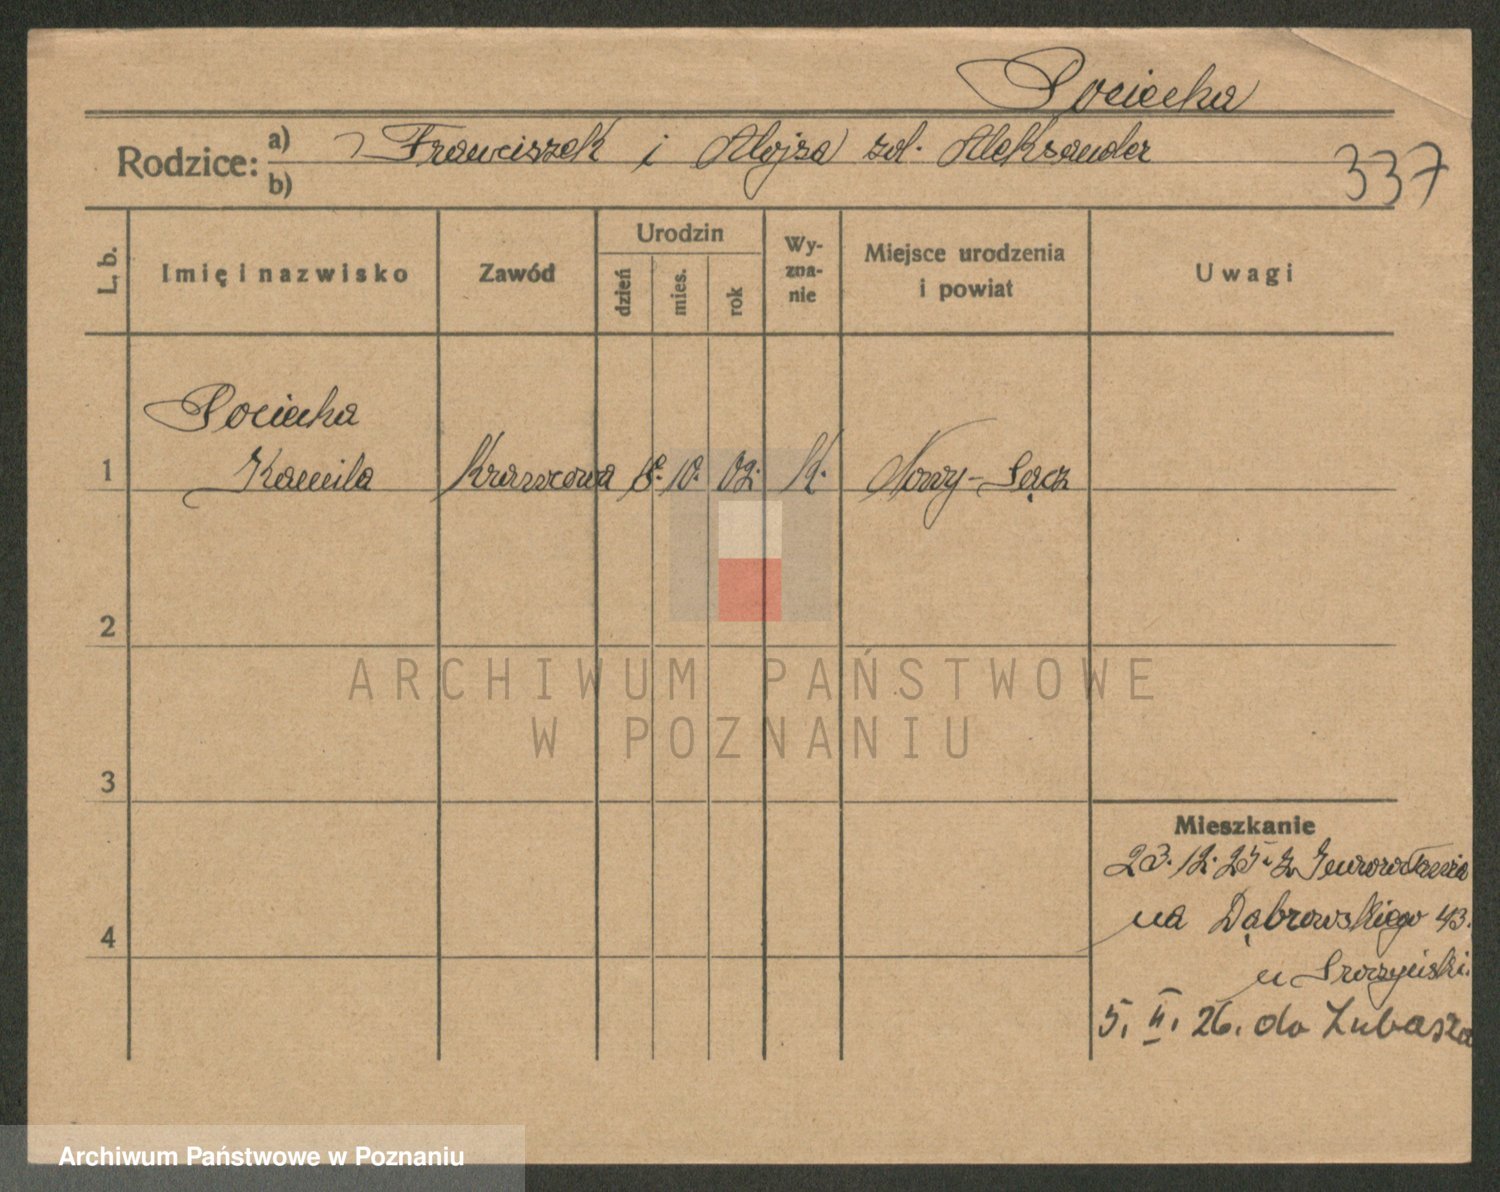 Pociecha
Rodzice: a) Franciszek i Alojza zd. Aleksander
b)
337
L. b.
Imię i nazwisko
Zawód
Urodzin
dzień
mies.
rok
Wy-
zna-
nie
Miejsce urodzenia
i powiat
Uwagi
Pociecha
1 Kamila Krawcowa 18. 10. 02. K. Nowy-Sącz
2
ARCHIWUM PAŃSTWOWE
W POZNANIU
3
Mieszkanie
23.12.25. z Inowrocławia
na Dąbrowskiego 43.
4
u
5. II. 26. do Lubasza
Archiwum Państwowe w Poznaniu